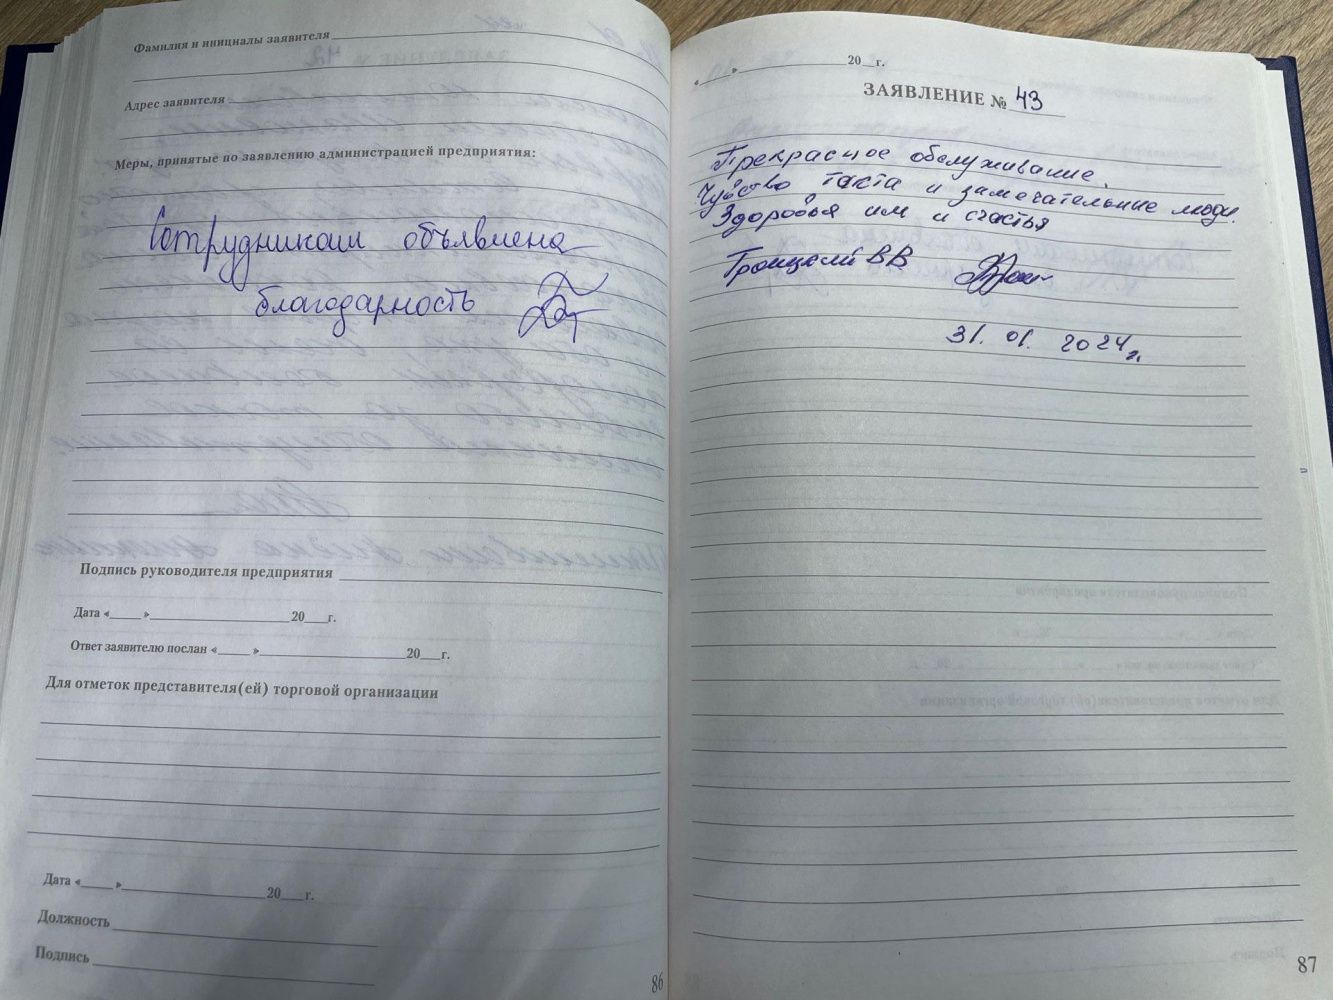 Фамилия и инициалы заявителя
Адрес заявителя
Меры, принятые по заявлению администрацией предприятия:
Сотрудникам объявлена
благодарность
Подпись руководителя предприятия
Дата «____» ____ 20__г.
Ответ заявителю послан «____» ____ 20__г.
Для отметок представителя(ей) торговой организации
Дата «____» ____ 20__г.
Должность
Подпись
86
«____» ____ 20__г.
ЗАЯВЛЕНИЕ № 43
Прекрасное обслуживание.
Чувство такта и замечательные люди.
Здоровья им и счастья
Троицкий ВВ
31. 01. 2024 г.
87